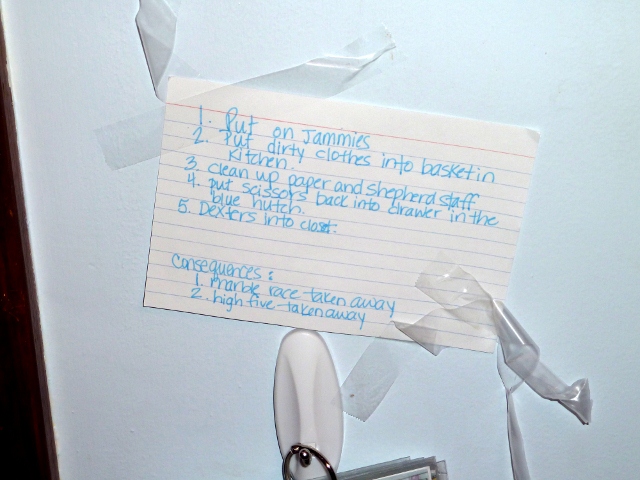 1. Put on Jammies
2. Put dirty clothes into basket in
kitchen.
3. clean up paper and shepherd staff
4. put scissors back into drawer in the
blue hutch.
5. Dexters into closet.
Consequences:
1. marble race taken away
2. high five taken away